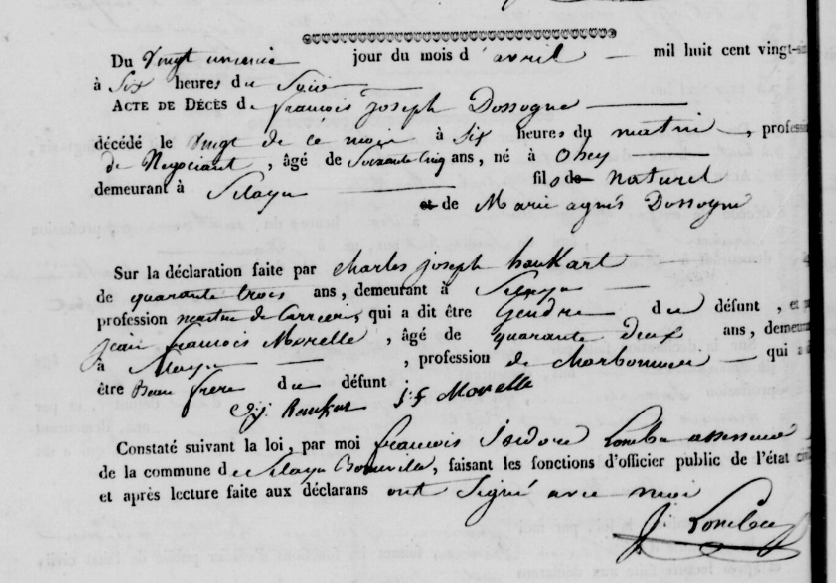 Du vingt unième jour du mois d'avril mil huit cent vingt-
à Six heures du Soir
ACTE DE DÉCÈS de françois joseph Dossogne
décédé le vingt de ce mois à Six heures du matin, profes
de Negociant, âgé de Soixante Cinq ans, né à Ohey
demeurant à Sclayn fils de naturel
et de Marie agnès Dossogne
Sur la déclaration faite par charles joseph haukart
de quarante trois ans, demeurant à Sclayn
profession maitre de Carrieres, qui a dit être Gendre du défunt, et
jean francois Morelle, âgé de quarante deux ans, demeu
à Sclayn, profession de charbonnier qui a
être Beau frere du défunt.
c.j. Haukart j:f Morelle
Constaté suivant la loi, par moi françois isidore Lombu assesseur
de la commune de Sclayn Bonneville, faisant les fonctions d'officier public de l'état civ
et après lecture faite aux déclarans ont Signé avec moi